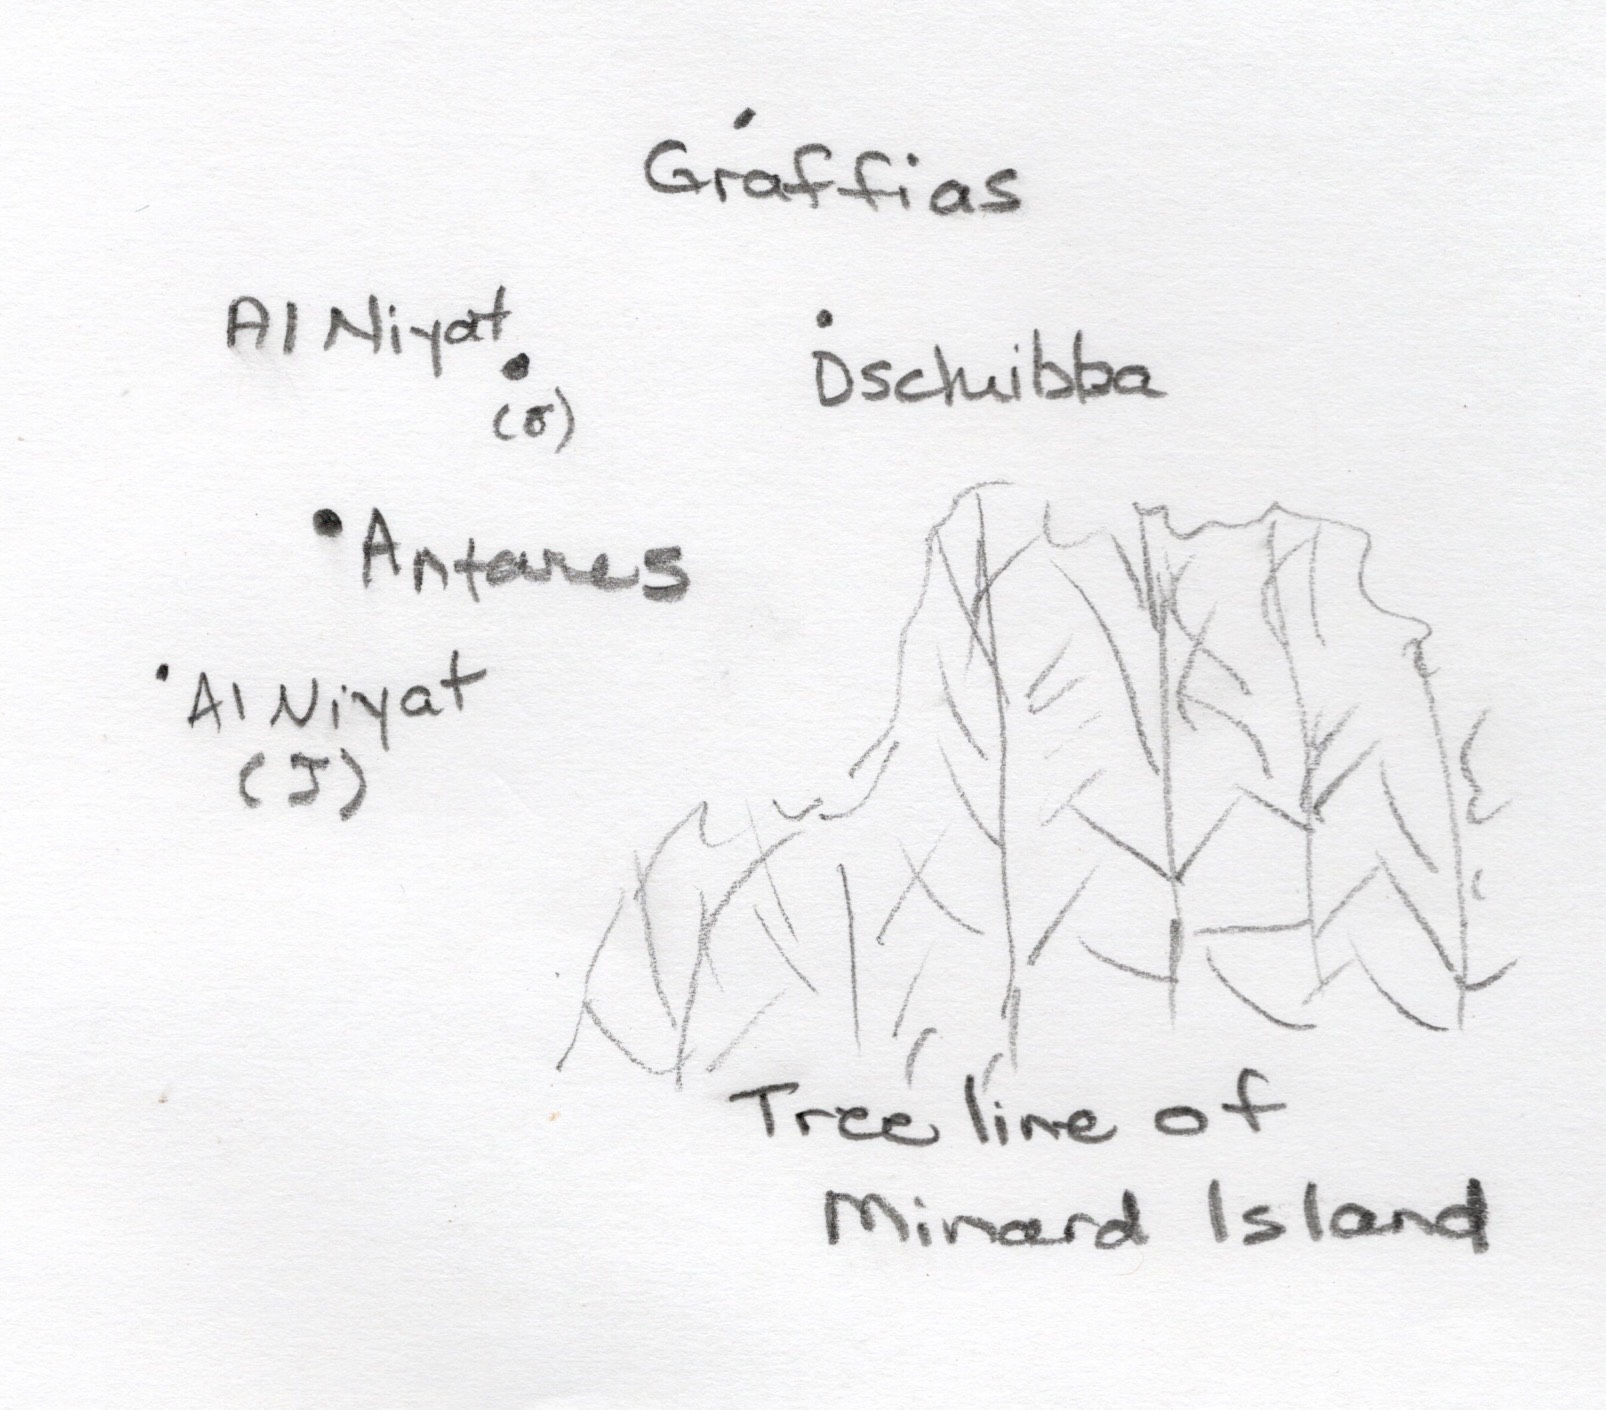 Graffias
Al Niyat
(σ)
Dschuibba
Antares
Al Niyat
(J)
Tree line of
Minard Island